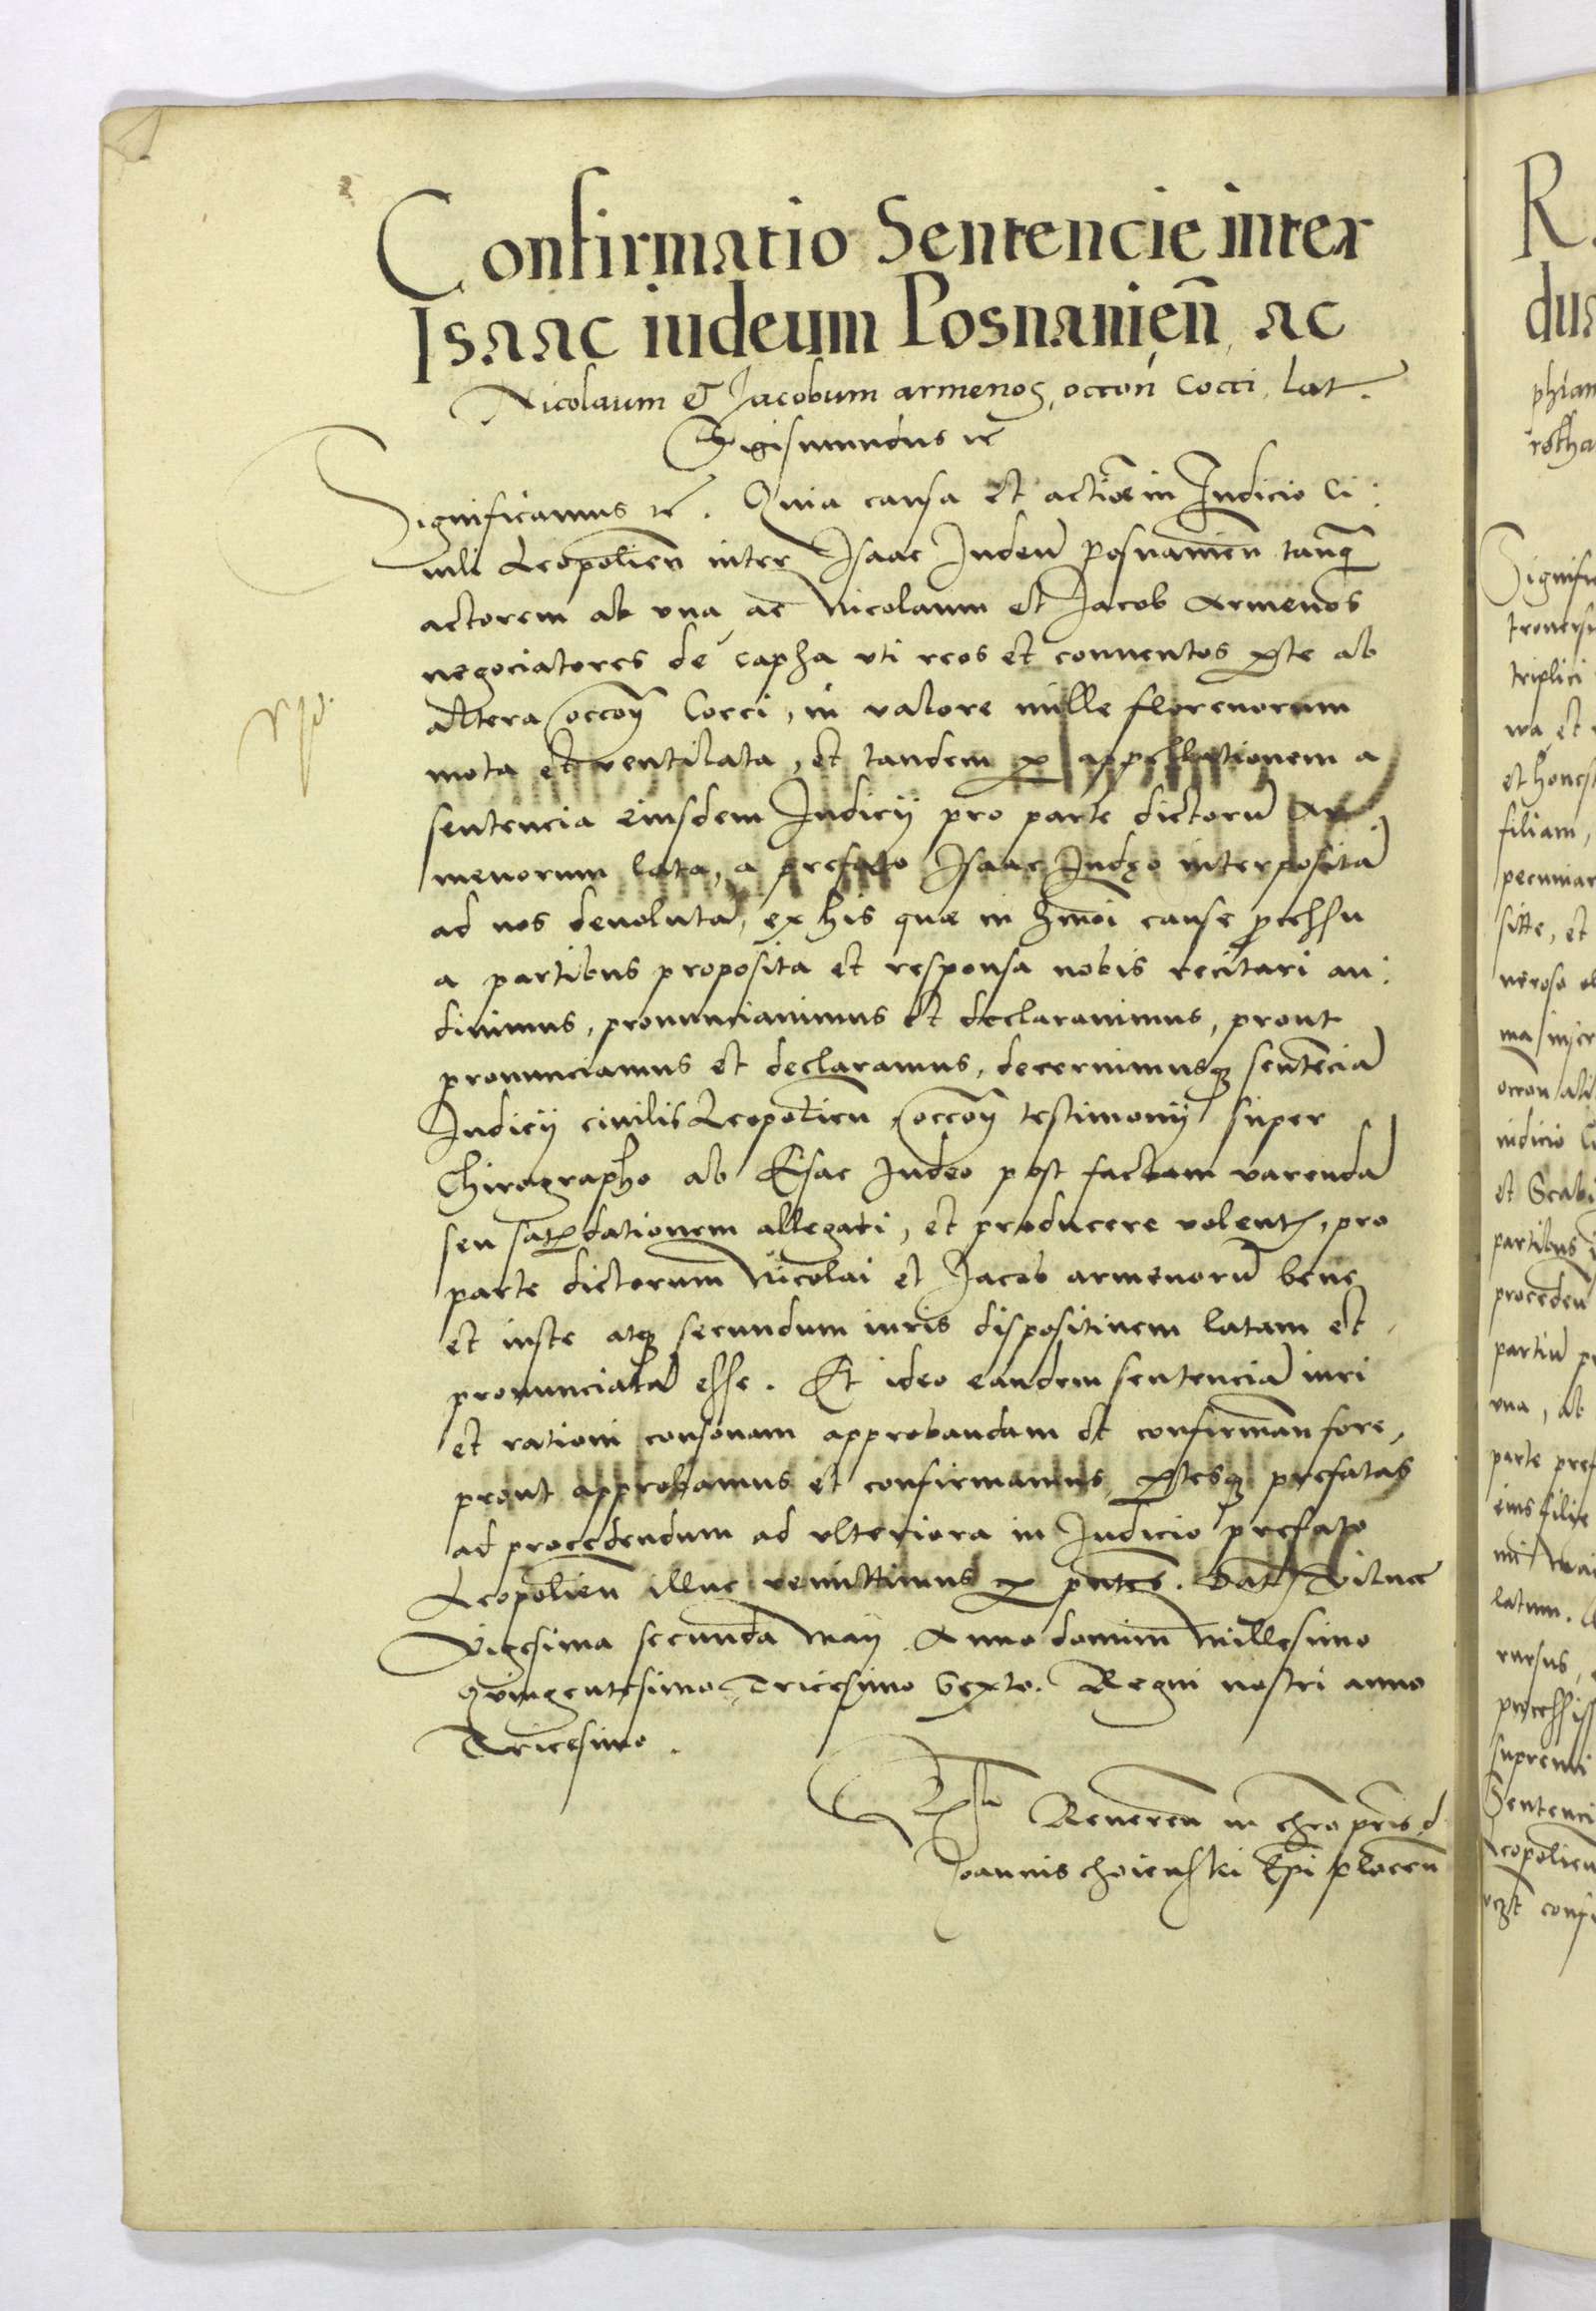 Confirmatio Sentencie inter
Isaac iudeum Posnanień ac
Nicolaum & Jacobum armenos, occoń Cocci, lat
Sigismundus rc
Significamus rc. Quia causa et actioe in Judicio Ci:
uili Leopolień inter Isaac Judeu Posnanień tanq
actorem ab vna ac Nicolaum et Jacob Armenos
negociatores de Capha vti reos et conuentos pte ab
altera occoń Cocci, in valore mille florenorum
mota et ventilata, et tandem p appellationem a
sentencia eiusdem Judicij pro parte dictoru Ar
menorum lata, a prefato Isaac Judęo interposita
ad nos deuoluta, ex his quæ in hmoi cause pcessu
a partibus proposita et responsa nobis recitari au:
diuimus, pronunciauimus et declarauimus, prout
pronunciamus et declaramus, decernimusq sentencia
Judicij ciuilis Leopolień occoń testimonij super
Chirographo ab Esac Judeo post factam varenda
seu satisdationem allegati, et producere volent, pro
parte dictorum Nicolai et Jacob armenoru bene
et iuste atq secundum iuris dispositinem latam et
pronunciata esse. Et ideo eandem sentencia iuri
et rationi consonam approbandam et confirmań fore,
prout approbamus et confirmamus, ptesq prefatas
ad procedendum ad vlteriora in Judicio prefato
Leopolień illuc remittimus p pntes. Dat Vilnæ
Vigesima secunda Maij Anno domini Millesimo
Quingentesimo Tricesimo Sexto. Regni nostri anno
Tricesimo.
Reuereń in chro pris d
Joannis Choienski Epi plocen
R
dua
phian
rotha
Signifi
trouersi
triplici
et
et honest
filiam,
pecuniar
et
nerosa
occoń
iudicio
et Scabi
partibus
proceden
partiu
vna, ab
parte pref
eius filie
latum.
rursus,
supremi
Sentenci
Leopolień
conf